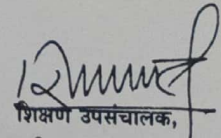 शिक्षण उपसंचालक,